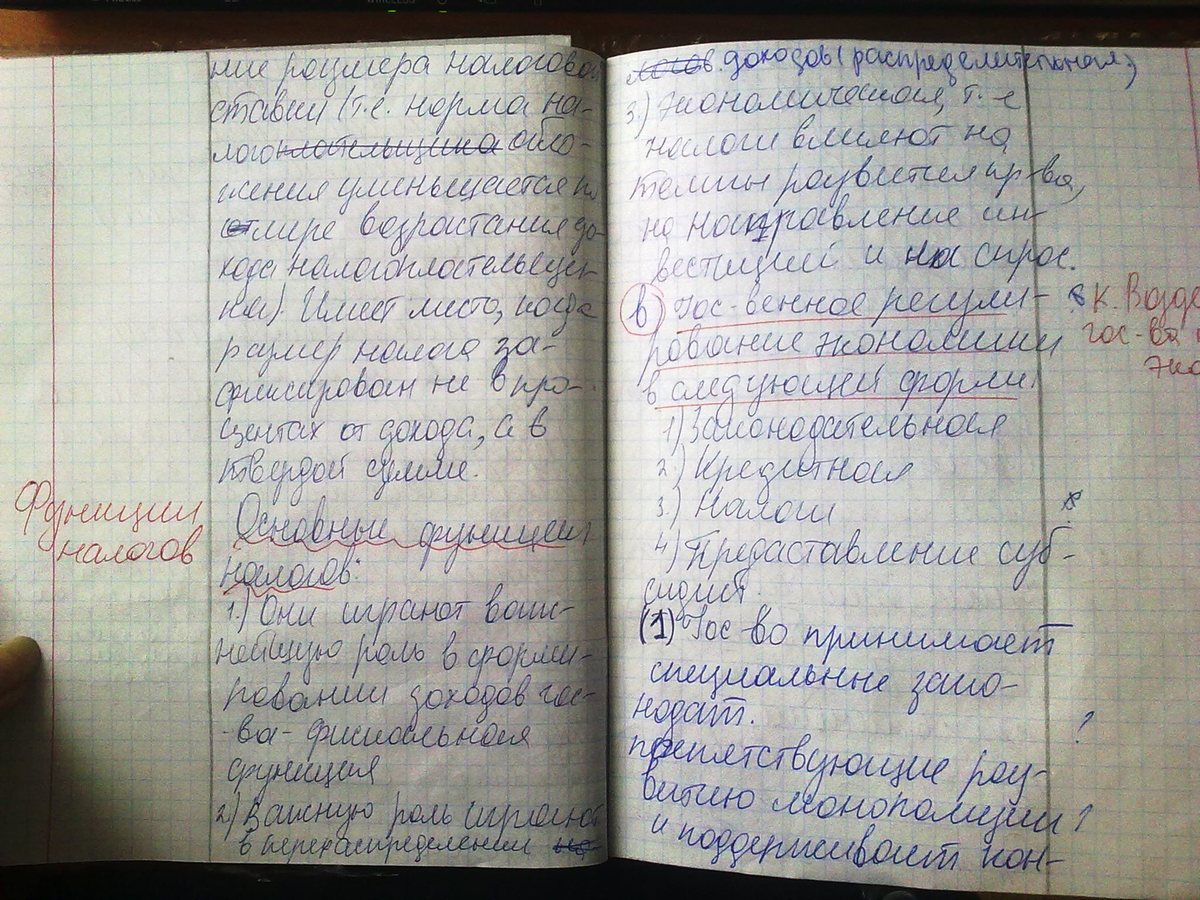 ние размера налоговой
ставки (т.е. норма на-
логоплательщика обло-
жения уменьшается по
мере возростания до-
хода налогоплательщи-
ка). Имеет место, когда
размер налога за-
фиксирован не в про-
центах от дохода, а в
твердой сумме.
Функции
налогов
Основные функции
налогов:
1.) Они играют важ-
нейшую роль в форми-
ровании доходов гос-
-ва - фискальная
функция
2) Важную роль играют
в перераспределении
доходов (распределительная)
3.) Экономическая, т.е
налоги влияют на
темпы развития пр-ва,
на направление ин-
вестиций и на спрос.
в) Гос-венное регули-
рование экономики
в следующей форми:
к. Возде
гос-ва
эко
1) Законодательная
2.) Кредитная
3.) Налоги
4) Предоставление суб-
сидит.
(1) Гос-во принимает
специальные зако-
нодат. ?
препятствующие раз-
витию монополиции ?
и поддерживает кон-